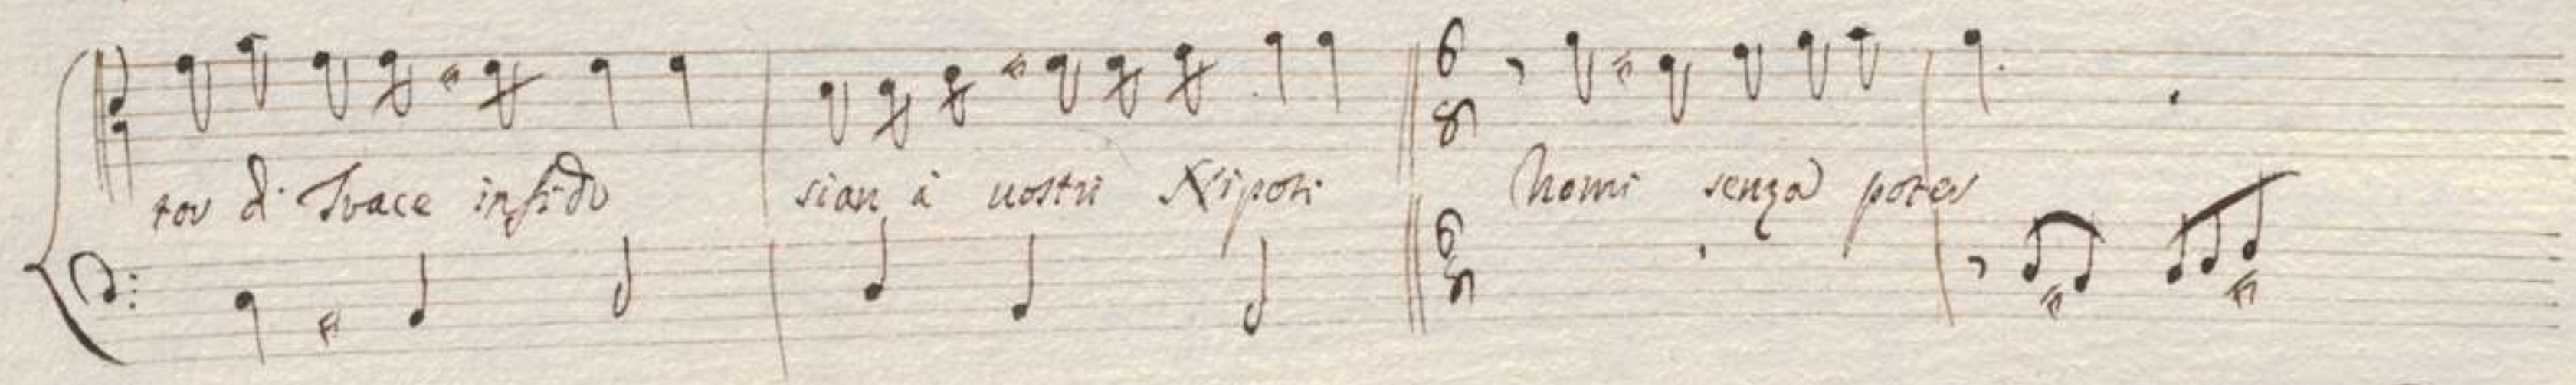 tor di Trace infido sian à nostri Nipoti Nomi senza poter